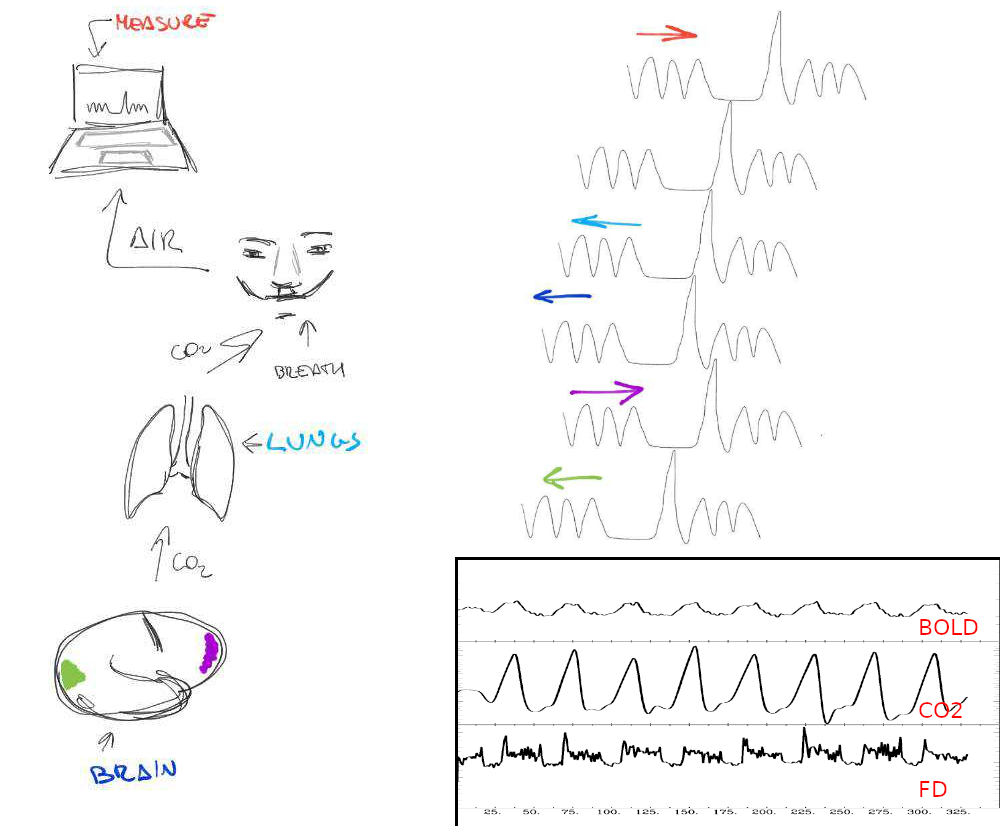 MEASURE
AIR
CO2
BREATH
LUNGS
CO2
BRAIN
BOLD
CO2
FD
25. 50. 75. 100. 125. 150. 175. 200. 225. 250. 275. 300. 325.